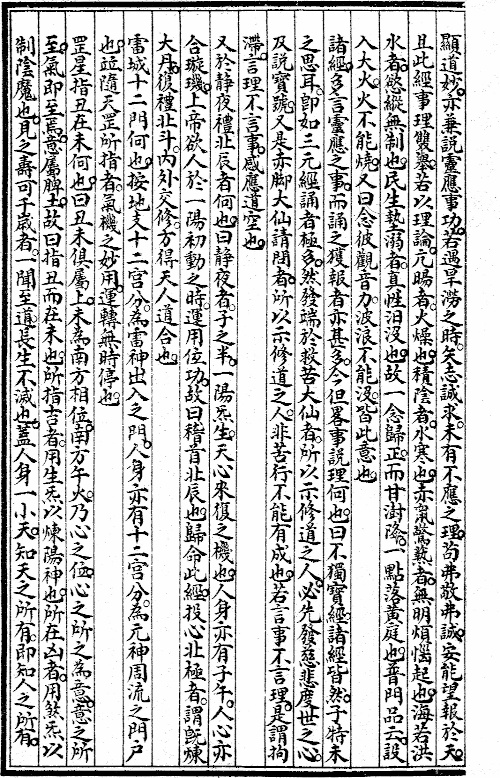 顯道妙。亦兼說靈應事功。若遇旱澇之時。矢志誠求。未有不應之理。茍弗敬弗誠。安能望報於天。
且此經事理雙舉。若以理論。亢暘者。火燥也。積陰者。水寒也。赤鼠驚蟄者。無明煩惱起也。海若洪
水者。慾縱無制也。民生墊溺者。真性汨沒也。故一念歸正。而甘澍降。一點落黃庭也。普門品云。設
入大火。火不能燒。又曰。念彼觀音力。波浪不能沒。皆此意也。
諸經多言靈應之事。而誦之獲報者亦甚多。今但畧事說理何也。曰不獨寶經。諸經皆然。子特未
之思耳。卽如三元經誦者極多。然發端於救苦大仙者。所以示修道之人。必先發慈悲度世之心。
及說寶號。又是赤脚大仙請問者。所以示修道之人。非苦行不能有成也。若言事不言理。是謂拘
滯。言理不言事。感應道空也。
又於靜夜禮北辰者何也。曰靜夜者。子之半。一陽炁生。天心來復之機也。人身亦有子午。人心亦
合璇璣。上帝欲人於一陽初動之時。運用位功。故曰稽首北辰也。歸命此經。投心北極者。謂旣煉
大丹。復禮北斗。內外交修。方得天人道合也。
雷城十二門何也。按地支十二宮分。為雷神出入之門。人身亦有十二宮分。為元神周流之門戶
也。逆隨天罡所指者。氣機之妙用。運轉無時停也。
罡星指丑在未何也。曰丑未俱屬土。未為南方相位。南方午火。乃心之位。心之所之為意。意之所
至。氣卽至焉。意屬脾土。故曰指丑而在未也。所指吉者。用生炁以煉陽神也。所在凶者。用煞炁以
制陰魔也。見之壽可千歲者。一聞至道。長生不滅也。蓋人身一小天。知天之所有。卽知人之所有。